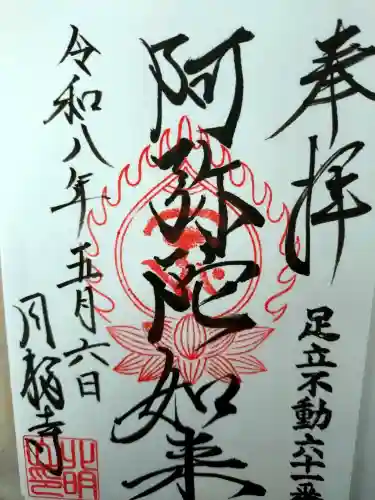 奉拝
足立不動六十一番
阿弥陀如来
令和八年五月六日